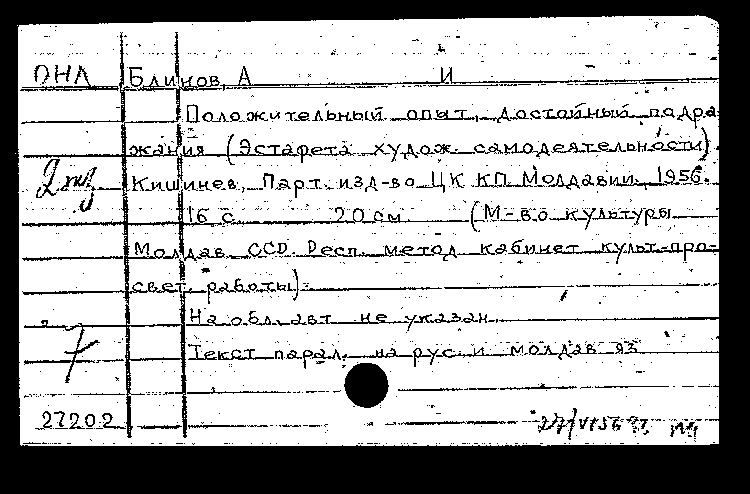 ОНЛ Блинов, А И
Положительный опыт, достойный подра-
жания (Эстафета худож. самодеятельности)
2 экз Кишинев, Парт. изд-во ЦК КП Молдавии. 1956.
16 с. 20 см. (М-во культуры
Молдав. ССР. Респ. метод. кабинет культ-про-
свет. работы).
На обл. авт. не указан
7 Текст парал. на рус. и молдав. яз.
27202